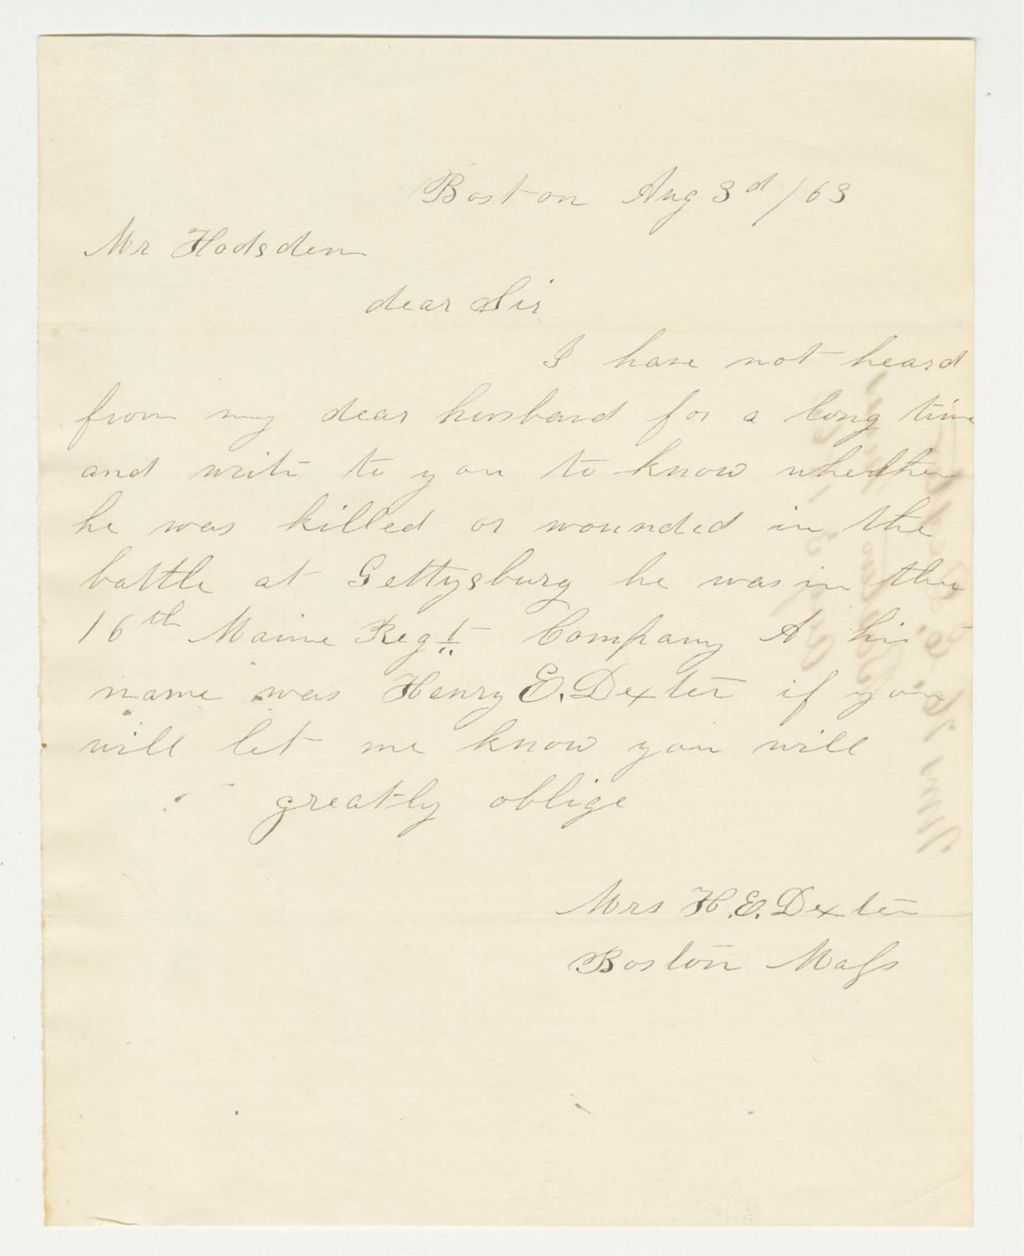 Boston Aug 3d/63
Mr Hodsden
dear Sir
I have not heard
from my dear husband for a long time
and write to you to know whether
he was killed or wounded in the
battle at Gettysburg he was in the
16th Maine Regt Company A his
name was Henry E. Dexter if you
will let me know you will
greatly oblige
Mrs H. E. Dexter
Boston Mass